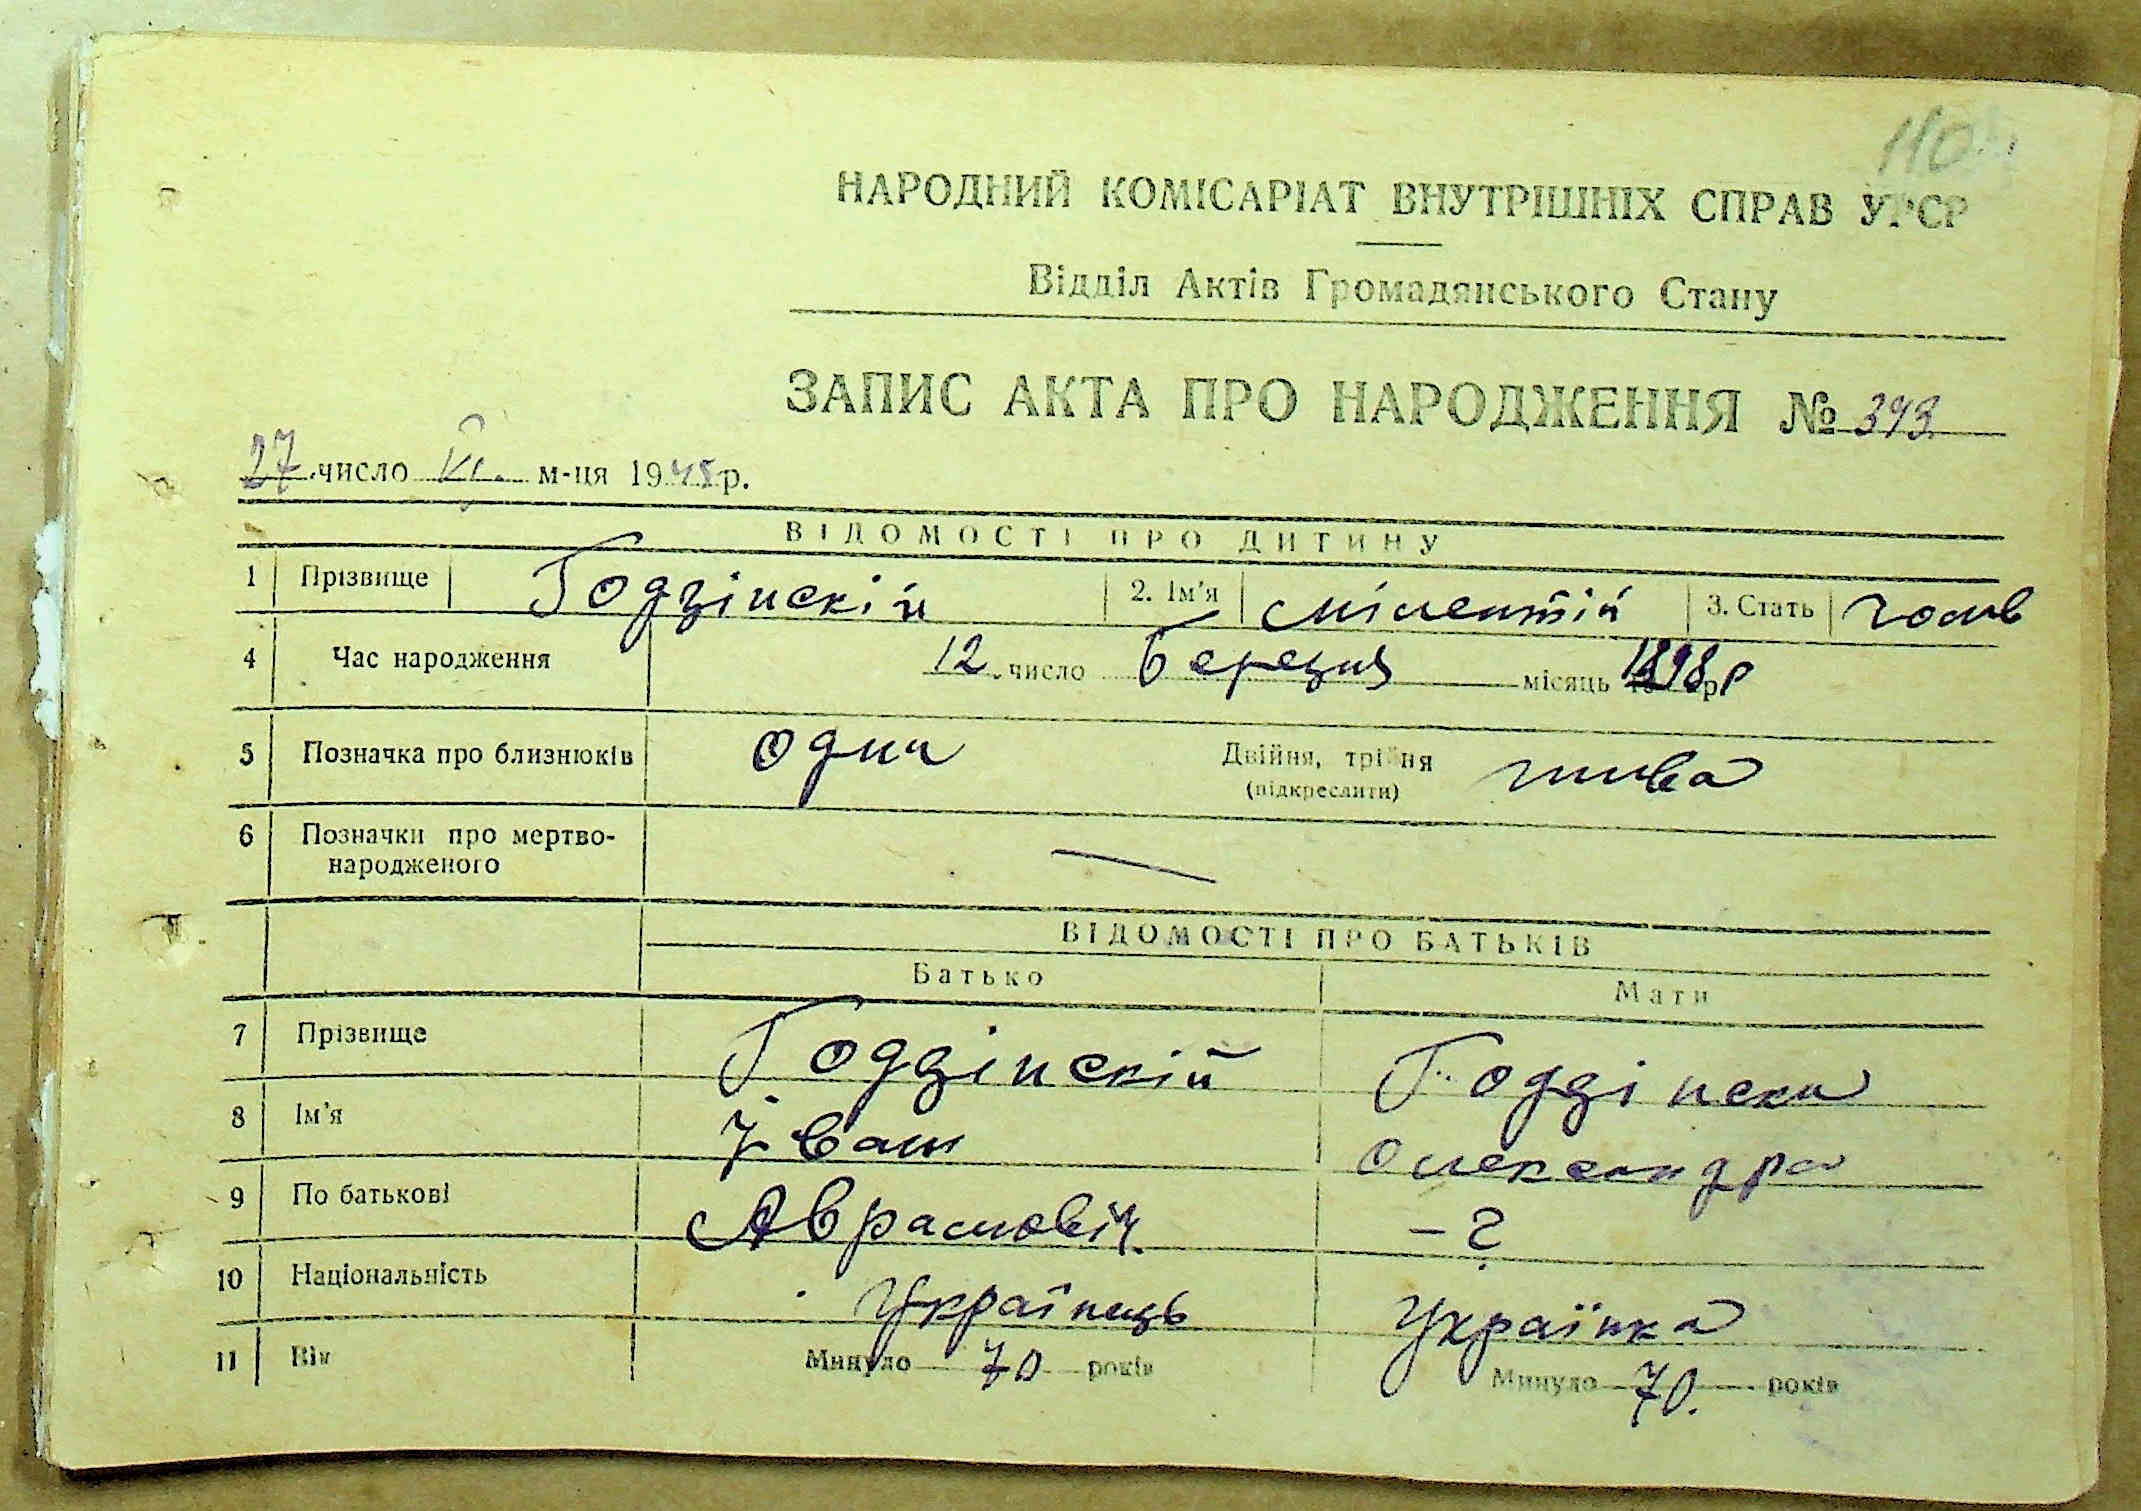 110
НАРОДНИЙ КОМІСАРІАТ ВНУТРІШНІХ СПРАВ УРСР
Відділ Актів Громадянського Стану
ЗАПИС АКТА ПРО НАРОДЖЕННЯ № 393
27 число VI. м-ця 1945 р.
ВІДОМОСТІ ПРО ДИТИНУ
1 Прізвище Годзінскій 2. Ім'я Мілентій 3. Стать чолов
4 Час народження 12 число березня місяць 1898 р
5 Позначка про близнюків один Двійня, трійня (підкреслити) жива
6 Позначки про мертво-
народженого —
ВІДОМОСТІ ПРО БАТЬКІВ
Батько Мати
7 Прізвище Годзінскій Годзінска
8 Ім'я Іван Олександра
9 По батькові Аврамовіч. — ?
10 Національність Українець Українка
11 Вік Минуло 70 років Минуло 70. років